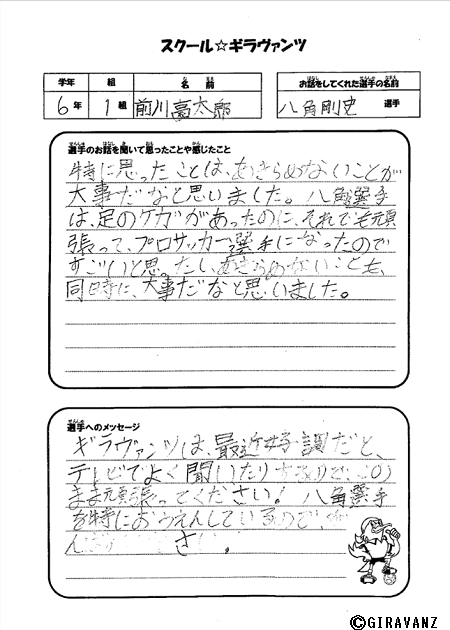 スクール☆ギラヴァンツ
学年 組 名前
6年 1組 前川亮太郎
お話をしてくれた選手の名前
八角剛史 選手
選手のお話を聞いて思ったことや感じたこと
特に思ったことは、あきらめないことが
大事だなと思いました。八角選手
は、足のケガがあったのに、それでも頑
張って、プロサッカー選手になったので
すごいと思ったし、あきらめないことも、
同時に、大事だなと思いました。
選手へのメッセージ
ギラヴァンツは、最近好調だと、
テレビでよく聞いたりするので、この
まま頑張ってください！八角選手
を特におうえんしているので、
さい。
©GIRAVANZ